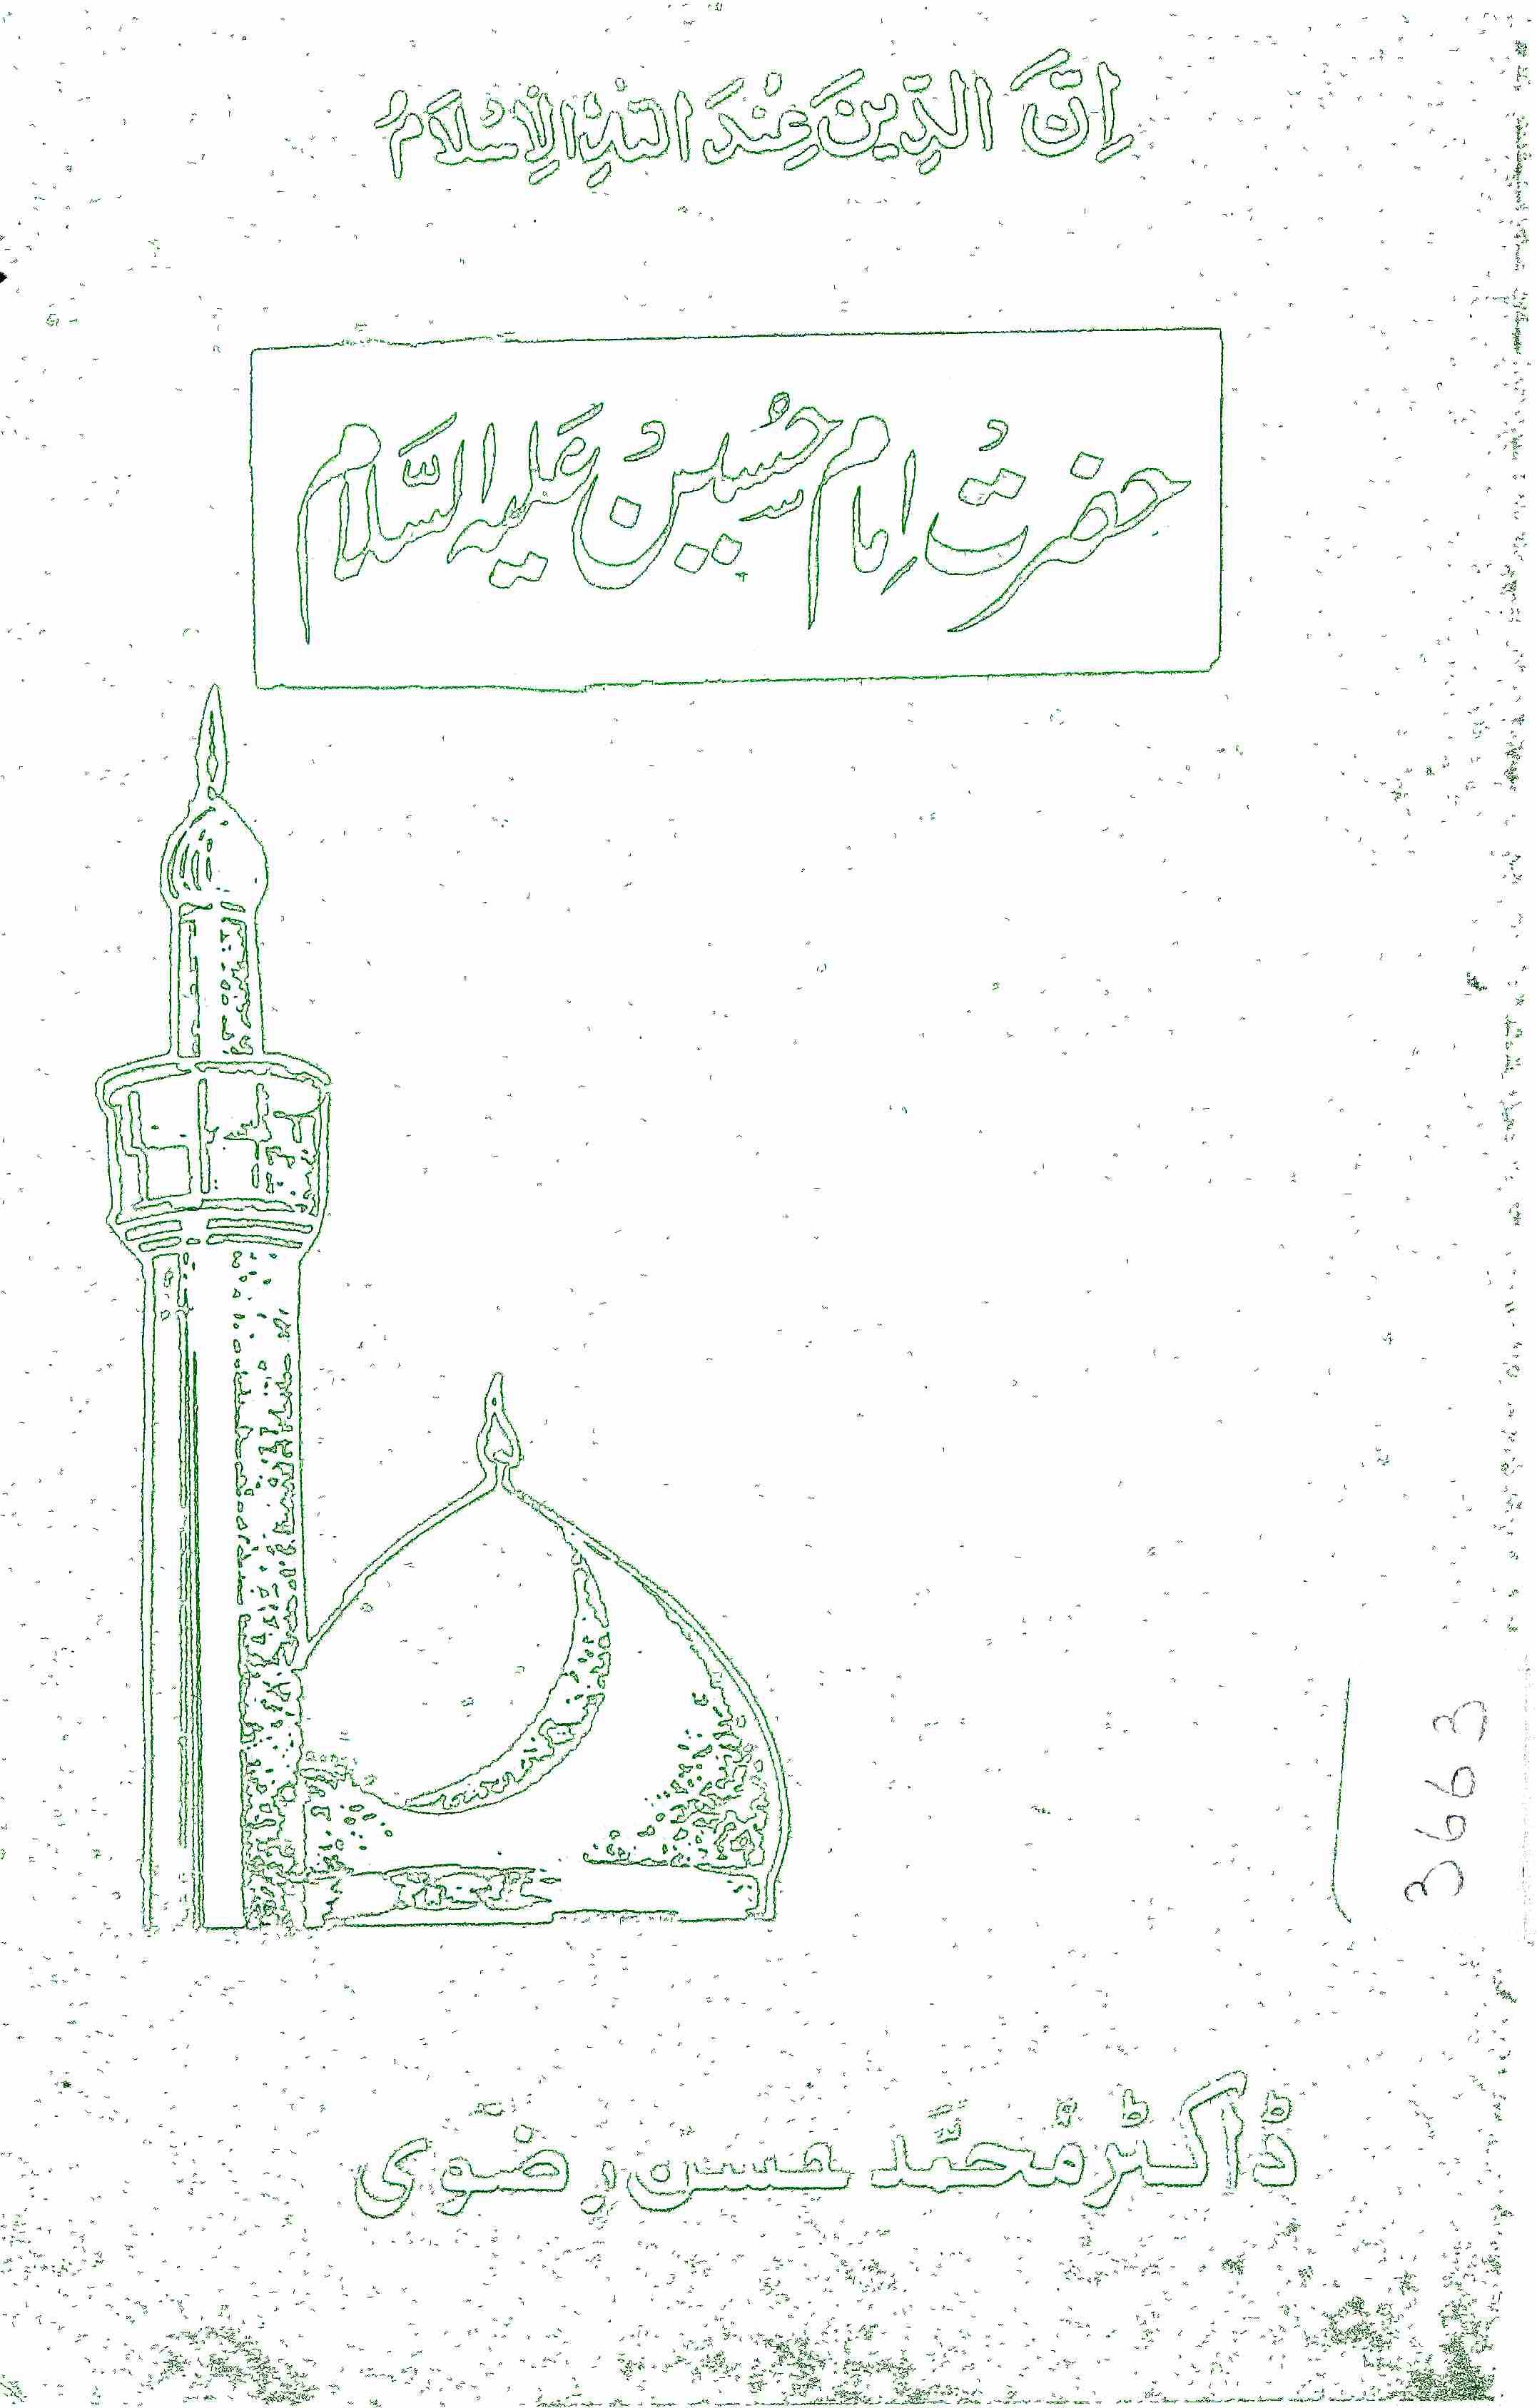 اِنَّ الدِّينَ عِنْدَ اللہِ الْاِسْلَامُ
حضرتُ اِمام حُسینُ عَلیہ السَّلام
3663
ڈاکٹر مُحمَّد حسن رِضَوی